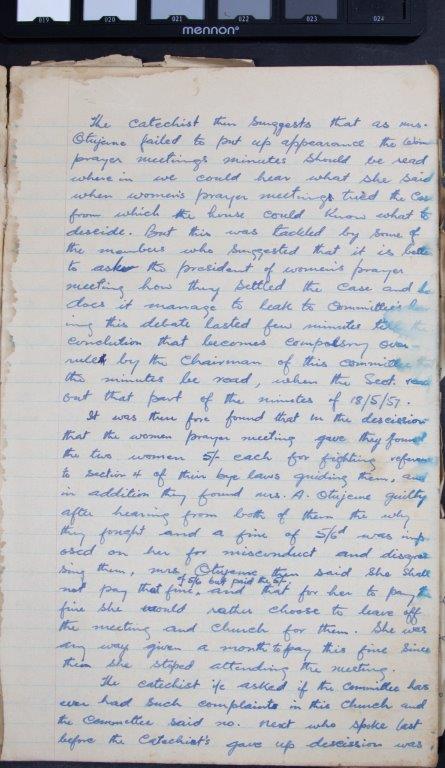 019 020 021 022 023 024
mennon
The Catechist then suggests that as mrs.
Otujeme failed to put up appearance the wom
prayer meetings minutes should be read
where in we could hear what she said
when women's prayer meetings tried the Cas
from which the house could know what to
descide. But this was tackled by some of
the members who suggested that it is bette
to ask the president of women's prayer
meeting how they settled the case and ho
does it manage to leak to Committee's
ing this debate lasted few minutes till the
conclution that becomes compulsory over
ruled by the Chairman of this committee
the minutes be read, when the Sect. read
out that part of the minutes of 18/5/57.
It was there fore found that in the descission
that the women prayer meeting gave they found
the two women 5/- each for fighting referen
to section 4 of their bye laws guiding them, and
in addition they found mrs. A. Otujeme guilty
after hearing from both of them the why
they fought and a fine of 5/6d was imp
osed on her for misconduct and disgra
sing them, mrs. Otujeme then said she shall
not pay that fine of 5/6 but paid the 5/-, and that for her to pay the
fine she would rather choose to leave off
the meeting and Church for them. She was
any way given a month to pay this fine since
then she stoped attending the meeting.
The catechist i/c asked if the committee has
ever had such complaints in this Church and
the Committee said no. Next who spoke last
before the Catechist's gave up descission was